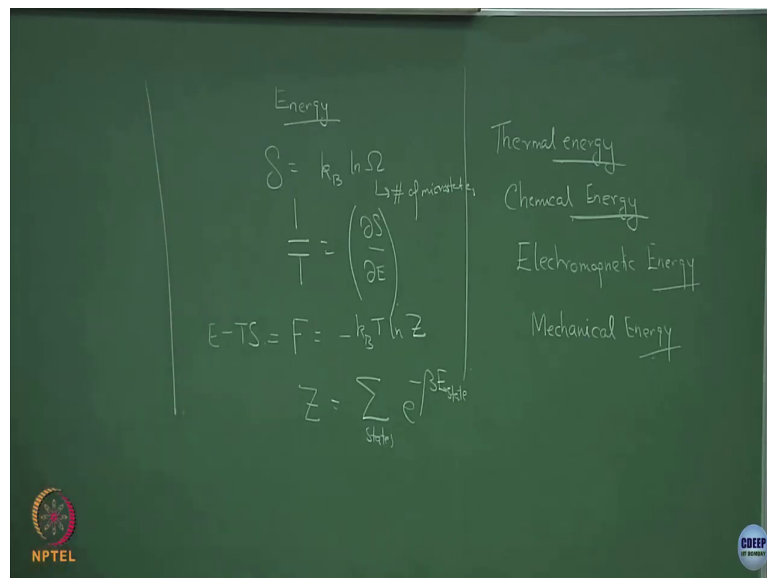 Energy
S = k_B ln Ω
↳ # of microstates
1/T = (∂S/∂E)
E-TS = F = -k_B T ln Z
Z = Σ_states e^{-βE_state}
Thermal energy
Chemical Energy
Electromagnetic Energy
Mechanical Energy
NPTEL
CDEEP
IIT BOMBAY